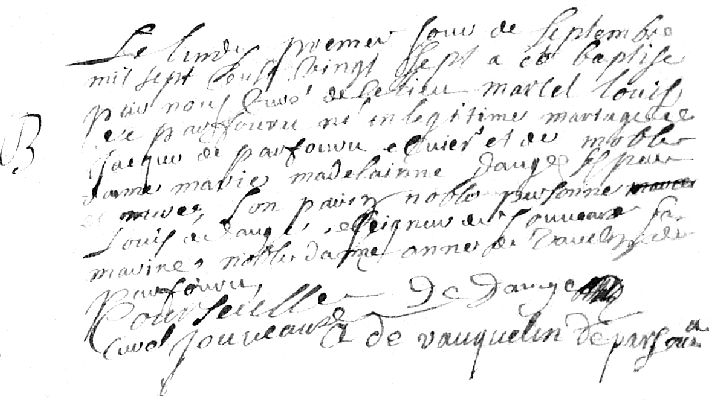 Le lundy premier jour de septembre
mil sept cent vingt sept a esté baptisé
par nous Curé de ce lieu marcel louis
de parfouru né en legitime mariage de
B
Jacques de parfouru escuier et de noble
dame marie madelainne dauge ses pere
et mere, son parin noble personne
Louis de dauge, seigneur de Jouveaux sa
marine, noble dame anne de vauquelin de
parfouru,
De dauge
Curé Jouveaux A de vauquelin de parfouru